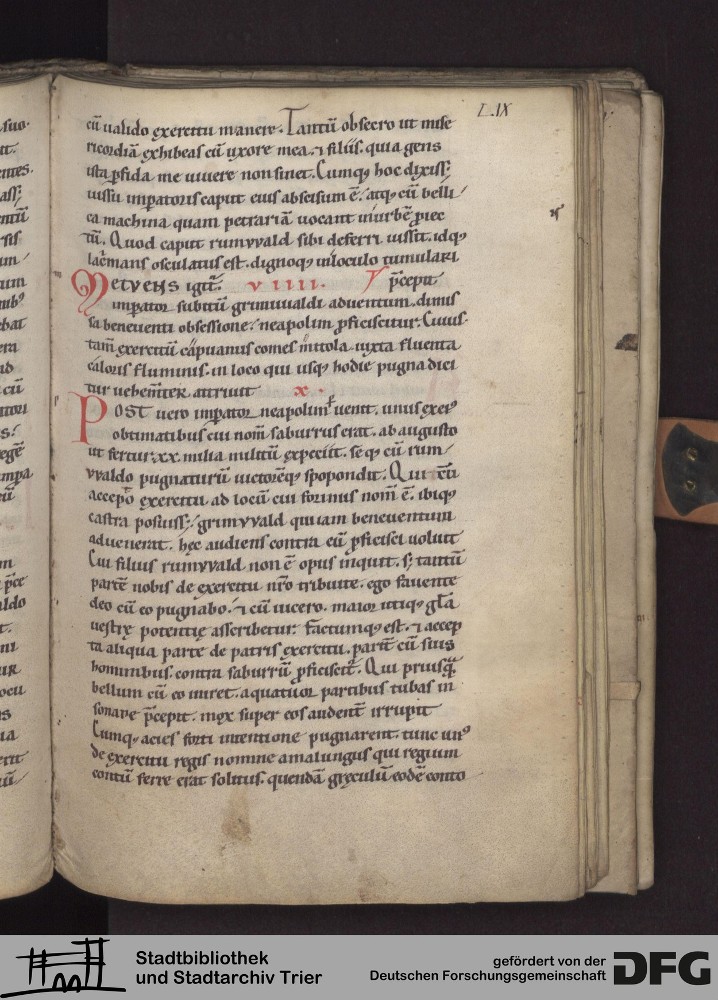 L.IX
cū ualido exercitu manere. Tantū obsecro ut mise
ricordiā exhibeas cū uxore mea. ⁊ filiis. quia gens
ista ꝑfida me uiuere non sinet. Cumq; hoc dixiss;
iussu imꝑatoris caput eius abscisum ē. atq; cū belli
ca machina quam petrariā uocant in urbē ꝓiec
tū. Quod caput rumwald sibi deferri iussit. idq;
lacrimans osculatus est. dignoq; in loculo tumulari
METVENS igit̄. VIIII. p̄cepit
imperator subitū grimuualdi aduentum. dimis
sa beneuenti obsessione. neapolim ꝓficiscitur. Cuius
tam̄ exercitū capuanus comes mittola iuxta fluenta
caloris fluminis. in loco qui usq; hodie pugna dici
tur uehem̄ter attriuit X.
POST uero imꝑator neapolim uenit. unus ex eiꝰ
obtimatibus cui nom̄ saburrus erat. ab augusto
ut fertur .xx. milia militū expetiit. seq; cū rum
wwaldo pugnaturū uictorēq; spopondit. Qui
accepto exercitu ad locū cui forinus nom̄ ē. ibiq;
castra posuiss; grimwald qui iam beneuentum
aduenerat. hęc audiens contra eū ꝓficisci uoluit
Cui filius rumwald non ē opus inquit. s; tantū
partē nobis de exercitu nr̄o tribuite. ego fauente
deo cū eo pugnabo. ⁊ cū uicero. maior utiq; gl̄a
uestrę potentię asscribetur. factumq; est. ⁊ accep
ta aliqua parte de patris exercitu. parit̄ cū suis
hominibus. contra saburrū ꝓficiscit̄. Qui priusquā
bellum cū eo iniret. a quatuor partibus tubas in
sonare p̄cepit. mox super eos audent̄ irrupit
Cumq; acies forti intentione pugnarent. tunc unꝰ
de exercitu regis nomine amalungus qui regium
contū ferre erat solitus. quendā gręculū eodē conto
Stadtbibliothek
und Stadtarchiv Trier
gefördert von der
Deutschen Forschungsgemeinschaft
DFG